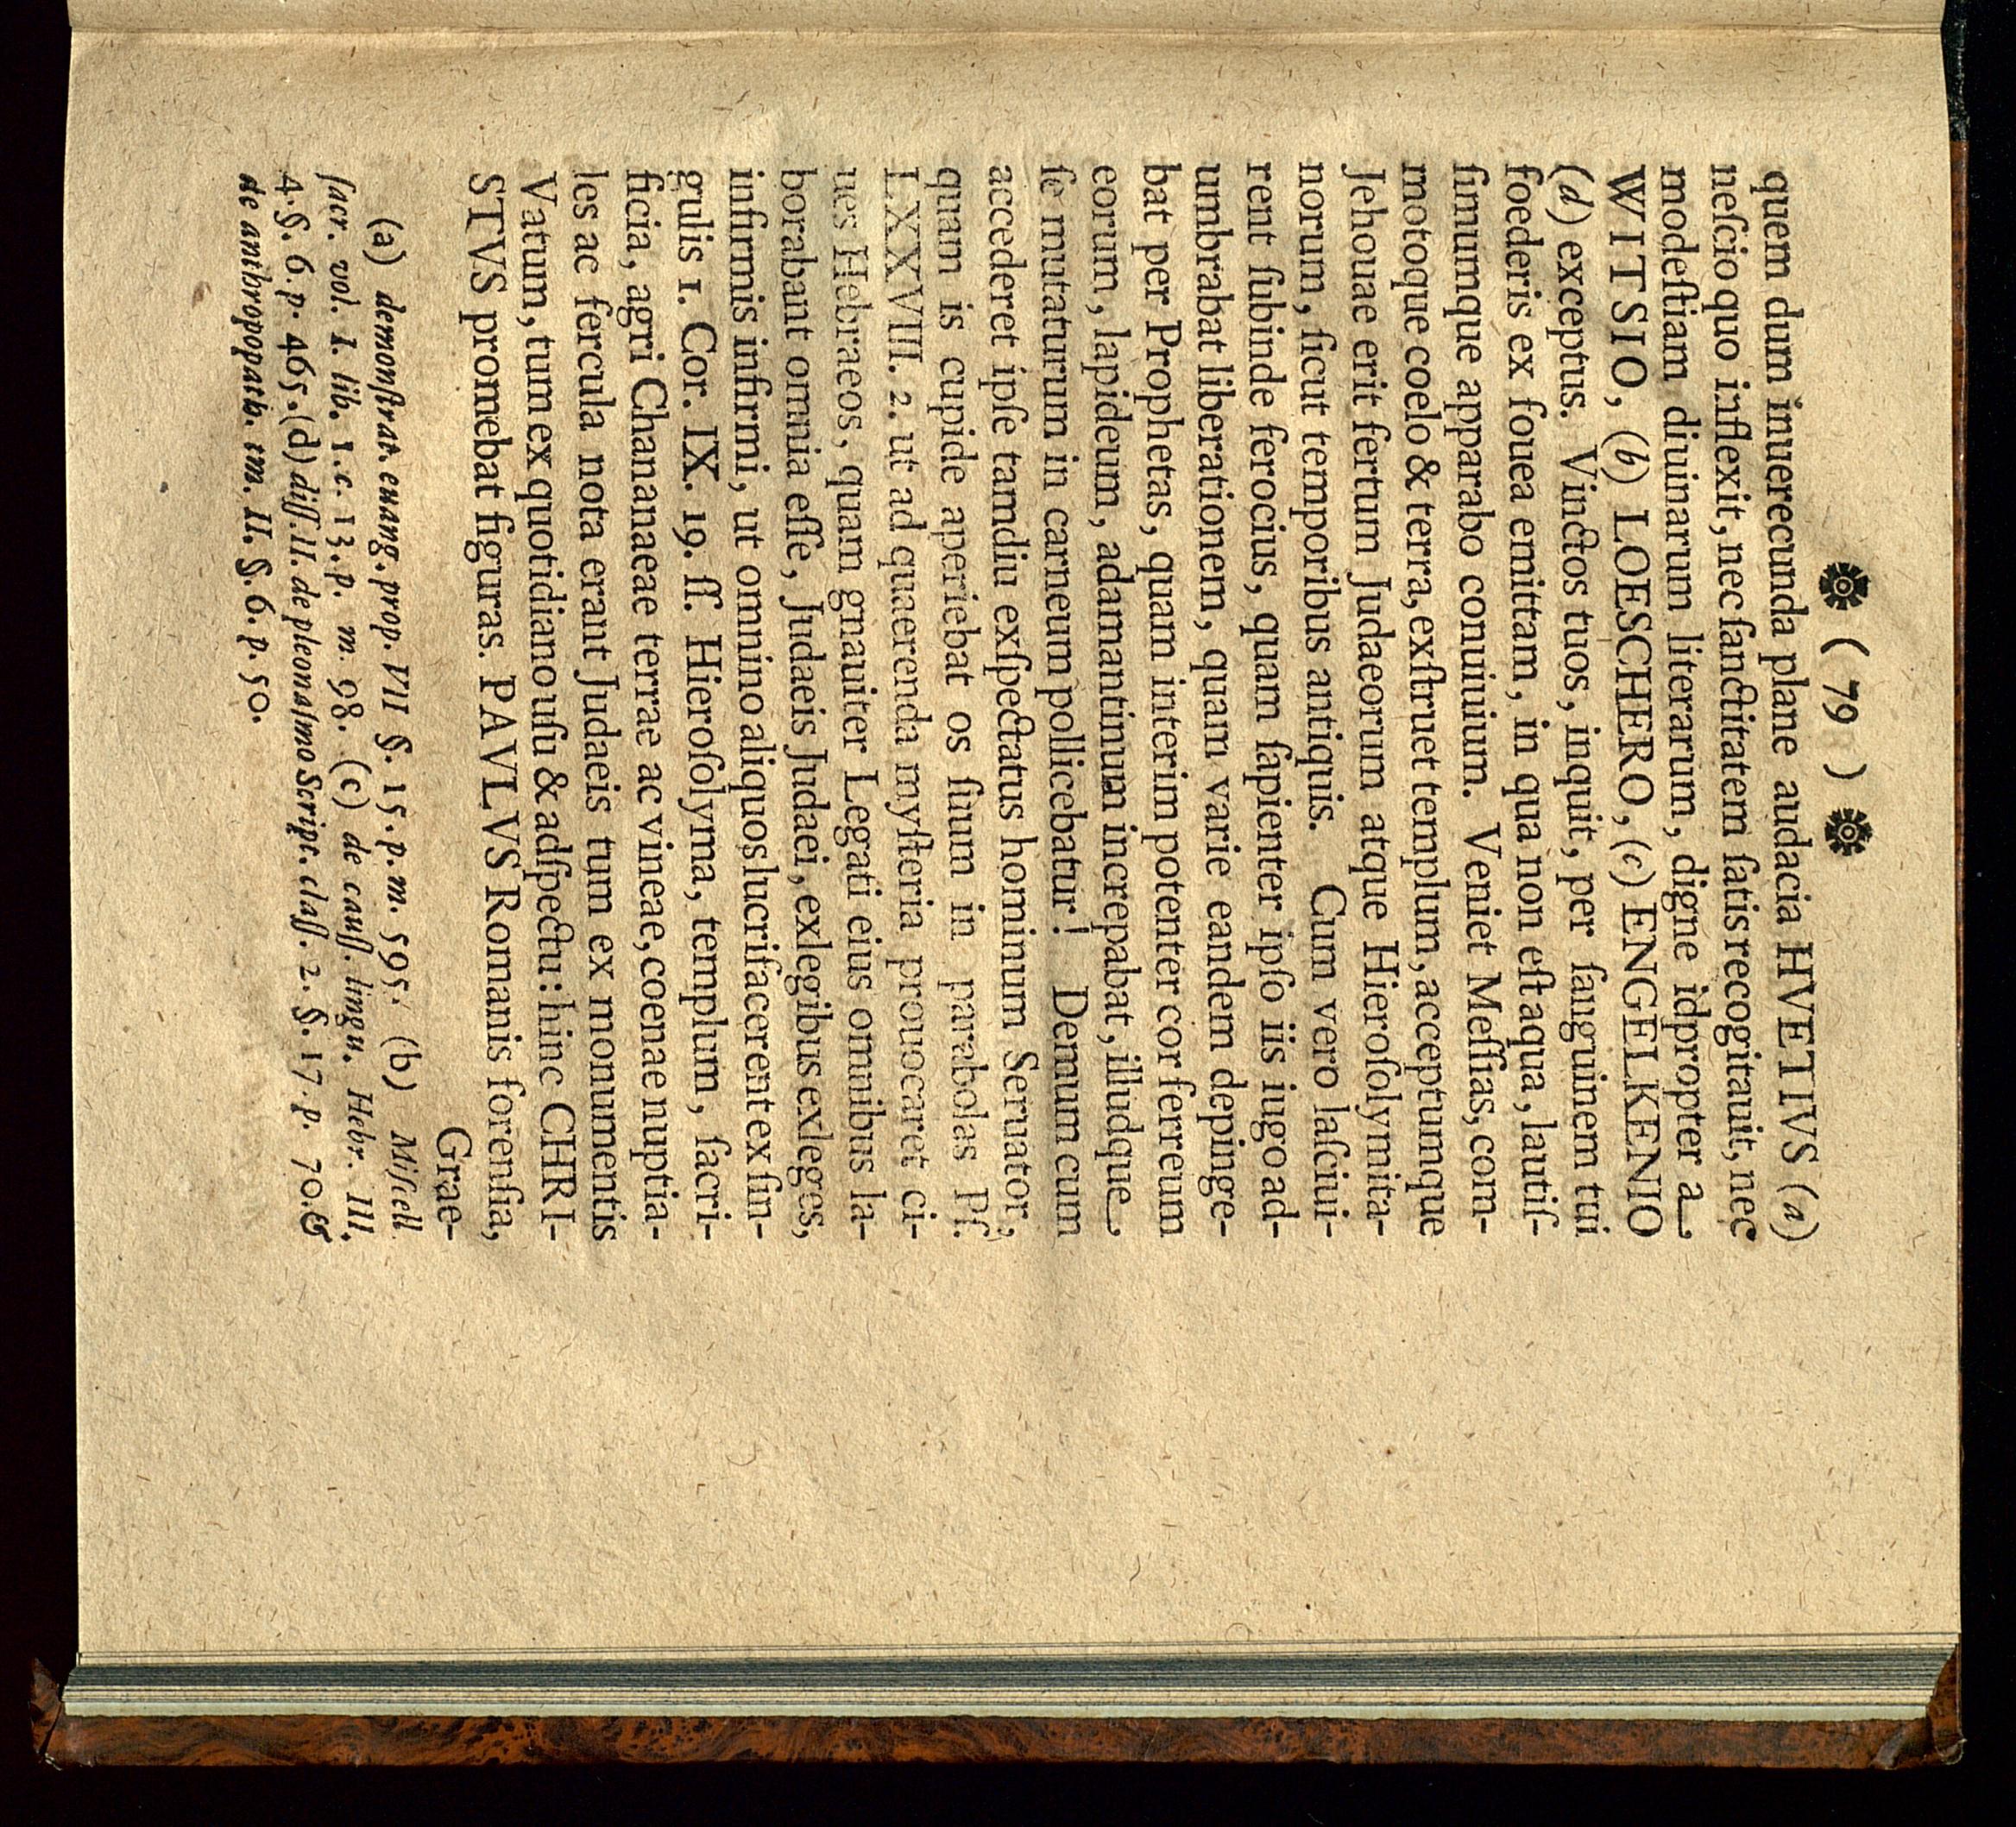 ( 79 )
quem dum inuerecunda plane audacia HVETIVS (a)
neſcio quo inflexit, nec ſanctitatem ſatis recogitauit, nec
modeſtiam diuinarum literarum, digne idpropter a
WITSIO, (b) LOESCHERO, (c) ENGELKENIO
(d) exceptus. Vinctos tuos, inquit, per ſanguinem tui
foederis ex fouea emittam, in qua non eſt aqua, lautiſ-
ſimumque apparabo conuiuium. Veniet Meſſias, com-
motoque coelo & terra, exſtruet templum, acceptumque
Jehouae erit fertum Judaeorum atque Hieroſolymita-
norum, ſicut temporibus antiquis. Cum vero laſciui-
rent ſubinde ferocius, quam ſapienter ipſo iis iugo ad-
umbrabat liberationem, quam varie eandem depinge-
bat per Prophetas, quam interim potenter cor ferreum
eorum, lapideum, adamantinum increpabat, illudque
ſe mutaturum in carneum pollicebatur! Demum cum
accederet ipſe tamdiu exſpectatus hominum Seruator,
quam is cupide aperiebat os ſuum in parabolas Pſ.
LXXVIII. 2. ut ad quaerenda myſteria prouocaret ci-
ues Hebraeos, quam gnauiter Legati eius omnibus la-
borabant omnia eſſe, Judaeis Judaei, exlegibus exleges,
infirmis infirmi, ut omnino aliquos lucrifacerent ex ſin-
gulis 1. Cor. IX. 19. ſſ. Hieroſolyma, templum, ſacri-
ficia, agri Chananaeae terrae ac vineae, coenae nuptia-
les ac fercula nota erant Judaeis tum ex monumentis
Vatum, tum ex quotidiano uſu & adſpectu: hinc CHRI-
STVS promebat figuras. PAVLVS Romanis forenſia,
Grae-
(a) demonſtrat. euang. prop. VII §. 15. p. m. 595. (b) Miſcell
ſacr. vol. I. lib. 1. c. 13. p. m. 98. (c) de cauſſ. lingu. Hebr. III.
4. §. 6. p. 465. (d) diſſ. II. de pleonaſmo Script. claſſ. 2. §. 17. p. 70. &
de anthropopath. im. II. §. 6. p. 50.